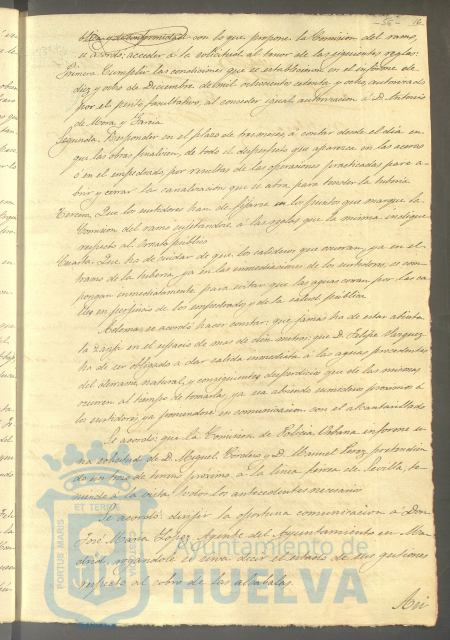 16
y de conformidad con lo que propone la Comision del ramo,
se acordó: acceder á la solicitud al tenor de las siguientes reglas:
Primera. Cumplir las condiciones que se establecieron en el informe de
diez y ocho de Diciembre de mil ochocientos setenta y ocho, autorizado
por el perito facultativo, al conceder igual autorizacion á D. Antonio
de Mora y Garcia
Segunda. Responder en el plazo de tres meses, á contar desde el dia en
que las obras finalicen, de todo el desperfecto que aparezca en las aceras
ó en el empedrado, por resultas de las operaciones practicadas para a-
brir y cerrar la canalizacion que se abra para tender la tuberia
Tercera. Que los surtidores han de fijarse en los puntos que marque la
Comision del ramo sujetandose á las reglas que la misma indique
respecto al ornato público
Cuarta. Que ha de cuidar de que los salideros que ocurran, ya en el
tramo de la tuberia, ya en las inmediaciones de los surtidores, se com-
pongan inmediatamente para evitar que las aguas corran por las ca-
lles en perjuicio de los empedrados y de la salud pública
Ademas se acordó hacer constar: que jamas ha de estar abierta
la zanja en el espacio de mas de diez metros: que D. Felipe Vazquez
ha de ser obligado á dar salida inmediata á las aguas procedentes
del derrame natural, y consiguientes desperdicios que de las mismas
ocurren al tiempo de tomarlas, ya sea abriendo sumideros proximos á
los surtidores, ya poniendolo en comunicacion con el alcantarillado
Se acordó: que la Comision de Policia Urbana informe u-
na solicitud de D. Miguel Cordero y D. Manuel Perez pretendien-
do un trozo de terreno proximo á la linea ferrea de Sevilla, te-
niendo á la vista todos los antecedentes necesarios
Se acordó: dirijir la oportuna comunicacion á Don
José Maria Lopez, Agente del Ayuntamiento en Ma-
drid, rogandole se sirva decir el estado de sus gestiones
respecto al cobro de las alcabalas.
Asi
PORTUS MARIS
ET TERRÆ
Ayuntamiento de
HUELVA